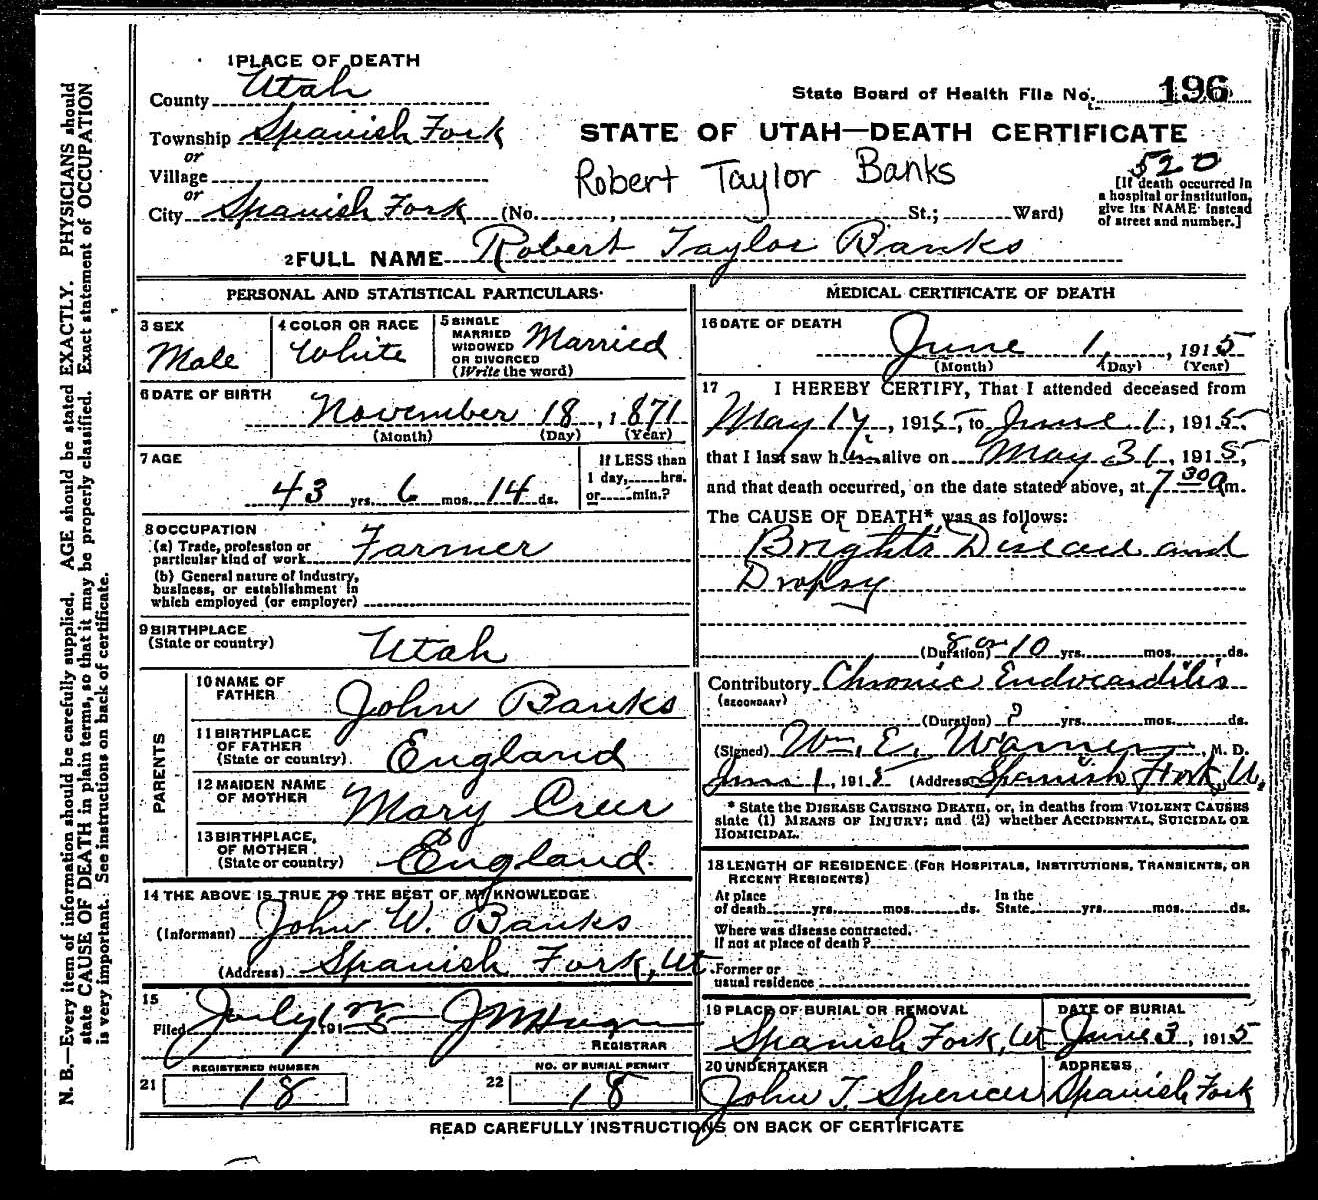 1 PLACE OF DEATH
County Utah
State Board of Health File No. 196
Township Spanish Fork
STATE OF UTAH—DEATH CERTIFICATE
or
Village
Robert Taylor Banks
520
or
City Spanish Fork (No. , St.; Ward)
[If death occurred in
a hospital or institution,
give its NAME instead
of street and number.]
2 FULL NAME Robert Taylor Banks
PERSONAL AND STATISTICAL PARTICULARS
3 SEX
Male
4 COLOR OR RACE
White
5 SINGLE
MARRIED
WIDOWED
OR DIVORCED
(Write the word)
Married
6 DATE OF BIRTH
November 18, 1871
(Month) (Day) (Year)
7 AGE
43 yrs. 6 mos. 14 ds.
If LESS than
1 day, hrs.
or min.?
8 OCCUPATION
(a) Trade, profession or
particular kind of work Farmer
(b) General nature of industry,
business, or establishment in
which employed (or employer)
9 BIRTHPLACE
(State or country) Utah
PARENTS
10 NAME OF
FATHER John Banks
11 BIRTHPLACE
OF FATHER
(State or country) England
12 MAIDEN NAME
OF MOTHER Mary Creer
13 BIRTHPLACE,
OF MOTHER
(State or country) England.
14 THE ABOVE IS TRUE TO THE BEST OF MY KNOWLEDGE
(Informant) John W. Banks
(Address) Spanish Fork, Ut
15
Filed July 191 5
REGISTRAR
REGISTERED NUMBER
21 18
NO. OF BURIAL PERMIT
22 18
MEDICAL CERTIFICATE OF DEATH
16 DATE OF DEATH
June 1, 1915
(Month) (Day) (Year)
17 I HEREBY CERTIFY, That I attended deceased from
May 17, 1915, to June 1, 1915,
that I last saw him alive on May 31, 1915,
and that death occurred, on the date stated above, at 7 30 a m.
The CAUSE OF DEATH* was as follows:
Bright's Disease and
Dropsy
(Duration) 8 or 10 yrs. mos. ds.
Contributory Chronic Endocarditis
(SECONDARY)
(Duration) ? yrs. mos. ds.
(Signed) Wm. E. Warner, M. D.
June 1, 1915 (Address) Spanish Fork, U.
* State the DISEASE CAUSING DEATH, or, in deaths from VIOLENT CAUSES
state (1) MEANS OF INJURY; and (2) whether ACCIDENTAL, SUICIDAL OR
HOMICIDAL.
18 LENGTH OF RESIDENCE (FOR HOSPITALS, INSTITUTIONS, TRANSIENTS, OR
RECENT RESIDENTS)
At place
of death yrs. mos. ds.
In the
State yrs. mos. ds.
Where was disease contracted,
If not at place of death?
Former or
usual residence
19 PLACE OF BURIAL OR REMOVAL
Spanish Fork, Ut
DATE OF BURIAL
June 3, 1915
20 UNDERTAKER
John T. Spencer
ADDRESS
Spanish Fork
READ CAREFULLY INSTRUCTIONS ON BACK OF CERTIFICATE
N. B.—Every item of information should be carefully supplied. AGE should be stated EXACTLY. PHYSICIANS should
state CAUSE OF DEATH in plain terms, so that it may be properly classified. Exact statement of OCCUPATION
is very important. See instructions on back of certificate.